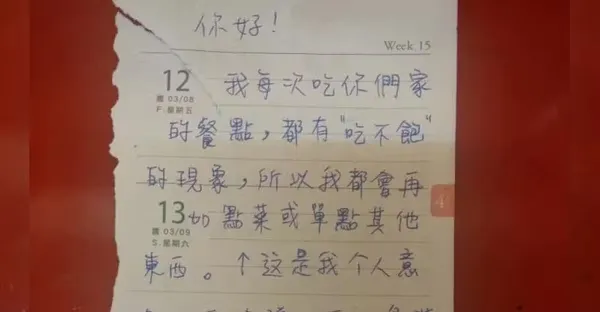 你好!
Week 15
12 我每次吃你們家
農 03/08
F.星期五
的餐點,都有"吃不飽"
的現象,所以我都會再
4
13 加點菜或單點其他
農 03/09
S.星期六
東西。↑這是我个人意